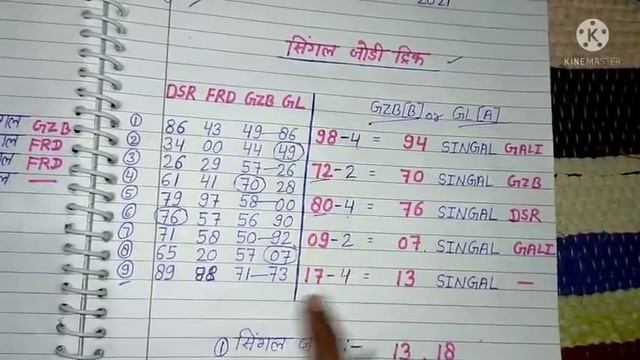 2021
K
KINEMASTER
सिंगल जोडी ट्रिक
DSR FRD GZB GL
GZB[B] or GL[A]
① 86 43 49-86
② 34 00 44 49
③ 26 29 57-26
④ 61 41 70 28
⑤ 79 97 58-00
⑥ 76 57 56 90
⑦ 71 58 50-92
⑧ 65 20 57 07
⑨ 89 98 71-73
98-4 = 94 SINGAL GALI
72-2 = 70 SINGAL GZB
80-4 = 76 SINGAL DSR
09-2 = 07. SINGAL GALI
17-4 = 13 SINGAL —
GZB
FRD
FRD
① सिंगल :- 13 18